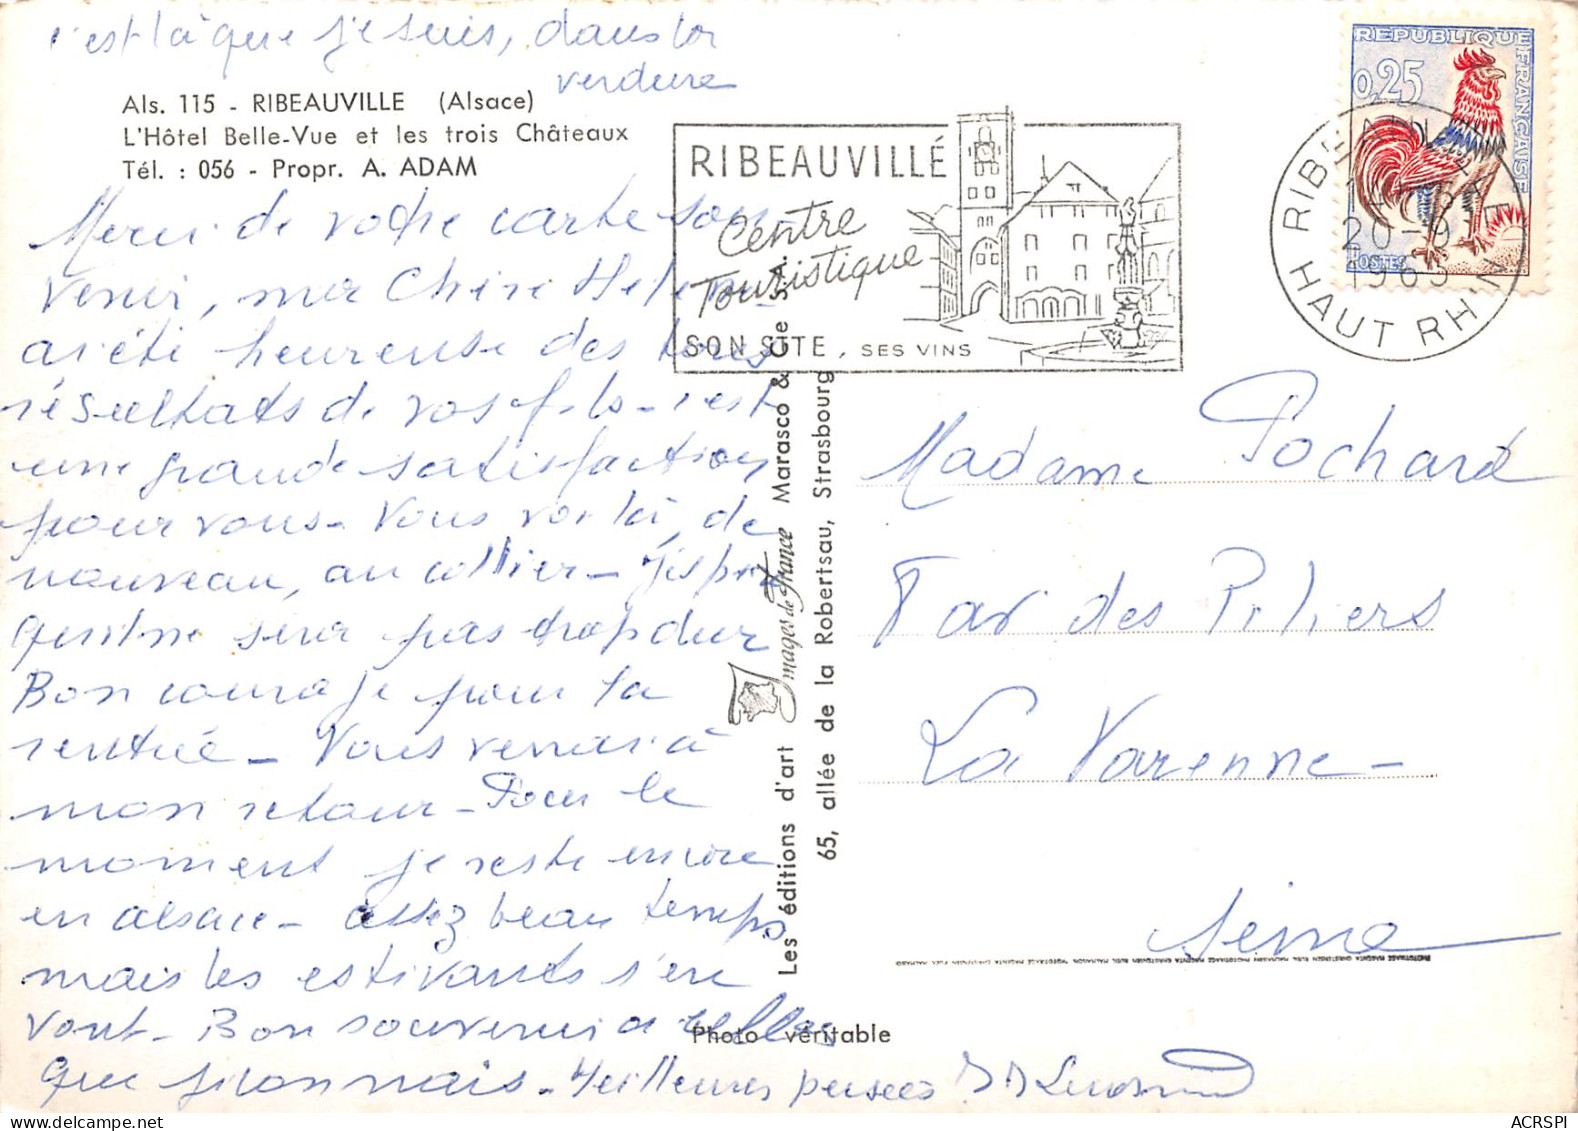 c'est là que je suis, dans la
verdure
Als. 115 - RIBEAUVILLE (Alsace)
L'Hôtel Belle-Vue et les trois Châteaux
Tél. : 056 - Propr. A. ADAM
Merci de votre carte sou
venir, ma Chère Helene
ai été heureuse des bons
résultats de vos fils - c'est
une grande satisfaction
pour vous - Vous voilà, de
nouveau, au collier - J'espère
qu'il ne sera pas trop dur
Bon courage pour la
rentrée - Vous verrai à
mon retour - Pour le
moment je reste encore
en alsace - assez beau temps
mais les estivants s'en
vont - Bon souvenir à celles
que je connais - Meilleures pensées
RIBEAUVILLÉ
Centre
Touristique
SON SITE, SES VINS
REPUBLIQUE FRANÇAISE
0,25
POSTES
RIBEAUVILLE
20-9
1963
HAUT RHIN
Les éditions d'art Images de France Marasco & Cie
65, allée de la Robertsau, Strasbourg
Madame Pochard
des Piliers
La Varenne -
Seine
Photo véritable
ACRSPI